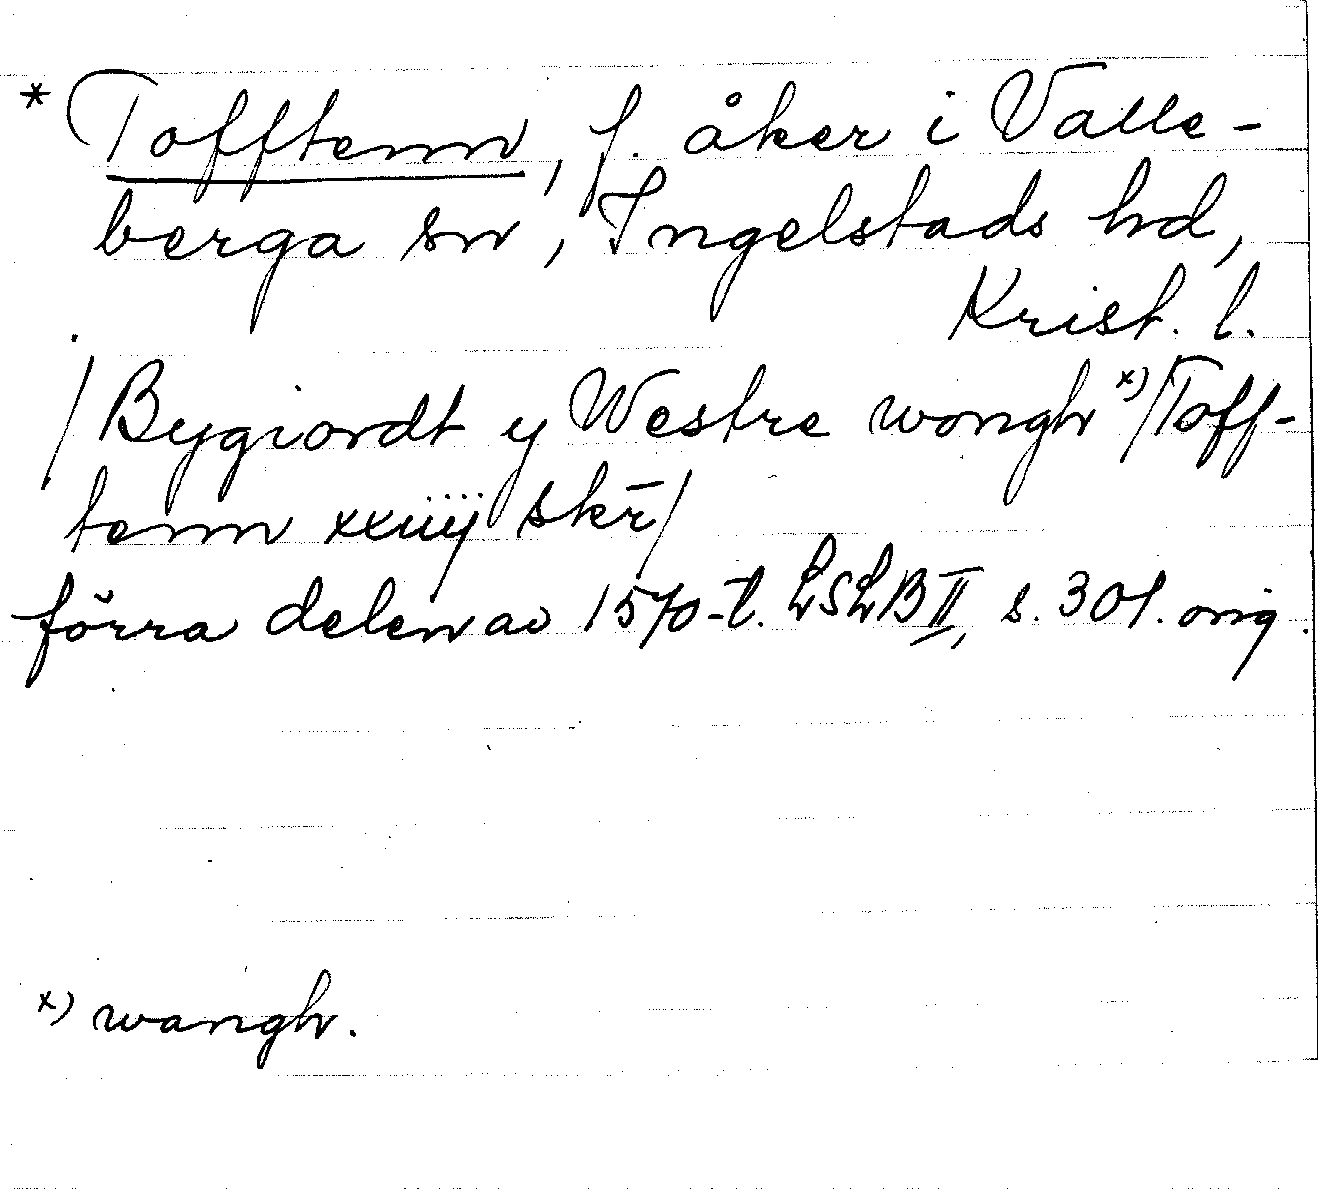 * Tofftenn, f. åker i Valle-
berga sn, Ingelstads hd,
Krist. l.
/Bygiordt y Westre wongh x)/Toff-
tenn xxiiij skr̄/
förra delen av 1570-t. LSLB II, s. 301. orig.
x) wangh.